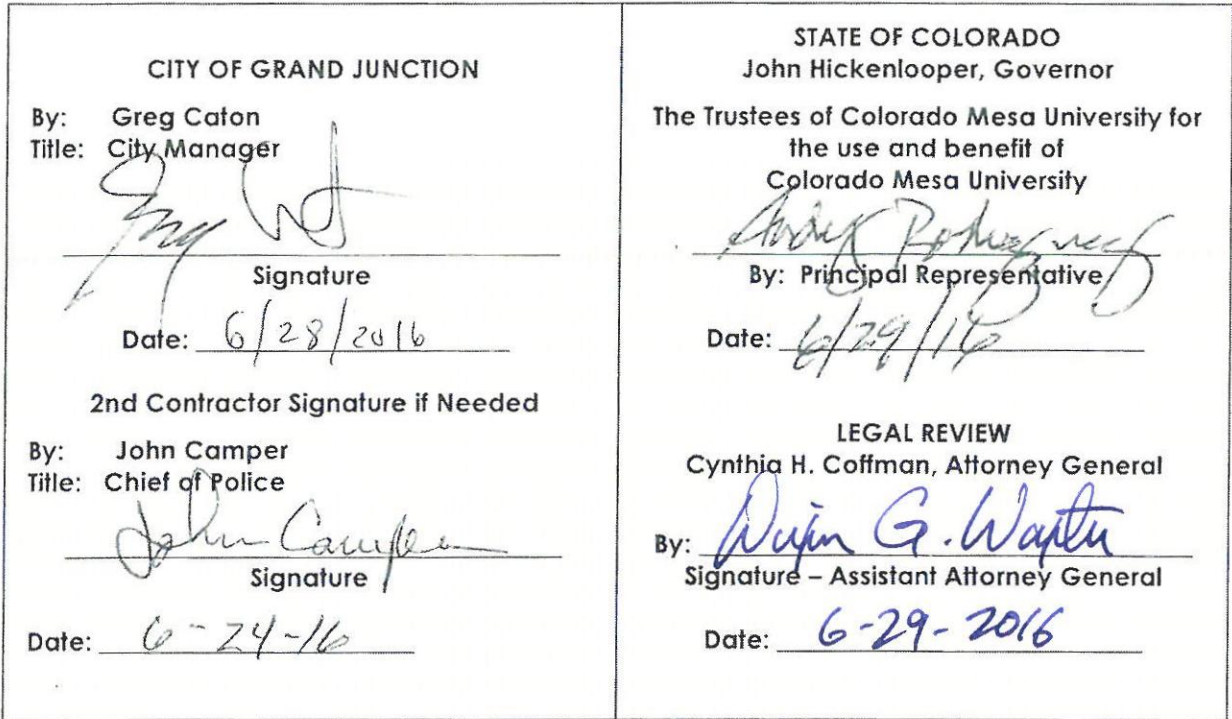 CITY OF GRAND JUNCTION
By: Greg Caton
Title: City Manager
Signature
Date: 6/28/2016
2nd Contractor Signature if Needed
By: John Camper
Title: Chief of Police
John Camper
Signature
Date: 6-24-16
STATE OF COLORADO
John Hickenlooper, Governor
The Trustees of Colorado Mesa University for
the use and benefit of
Colorado Mesa University
By: Principal Representative
Date: 6/29/16
LEGAL REVIEW
Cynthia H. Coffman, Attorney General
By: G.
Signature – Assistant Attorney General
Date: 6-29-2016